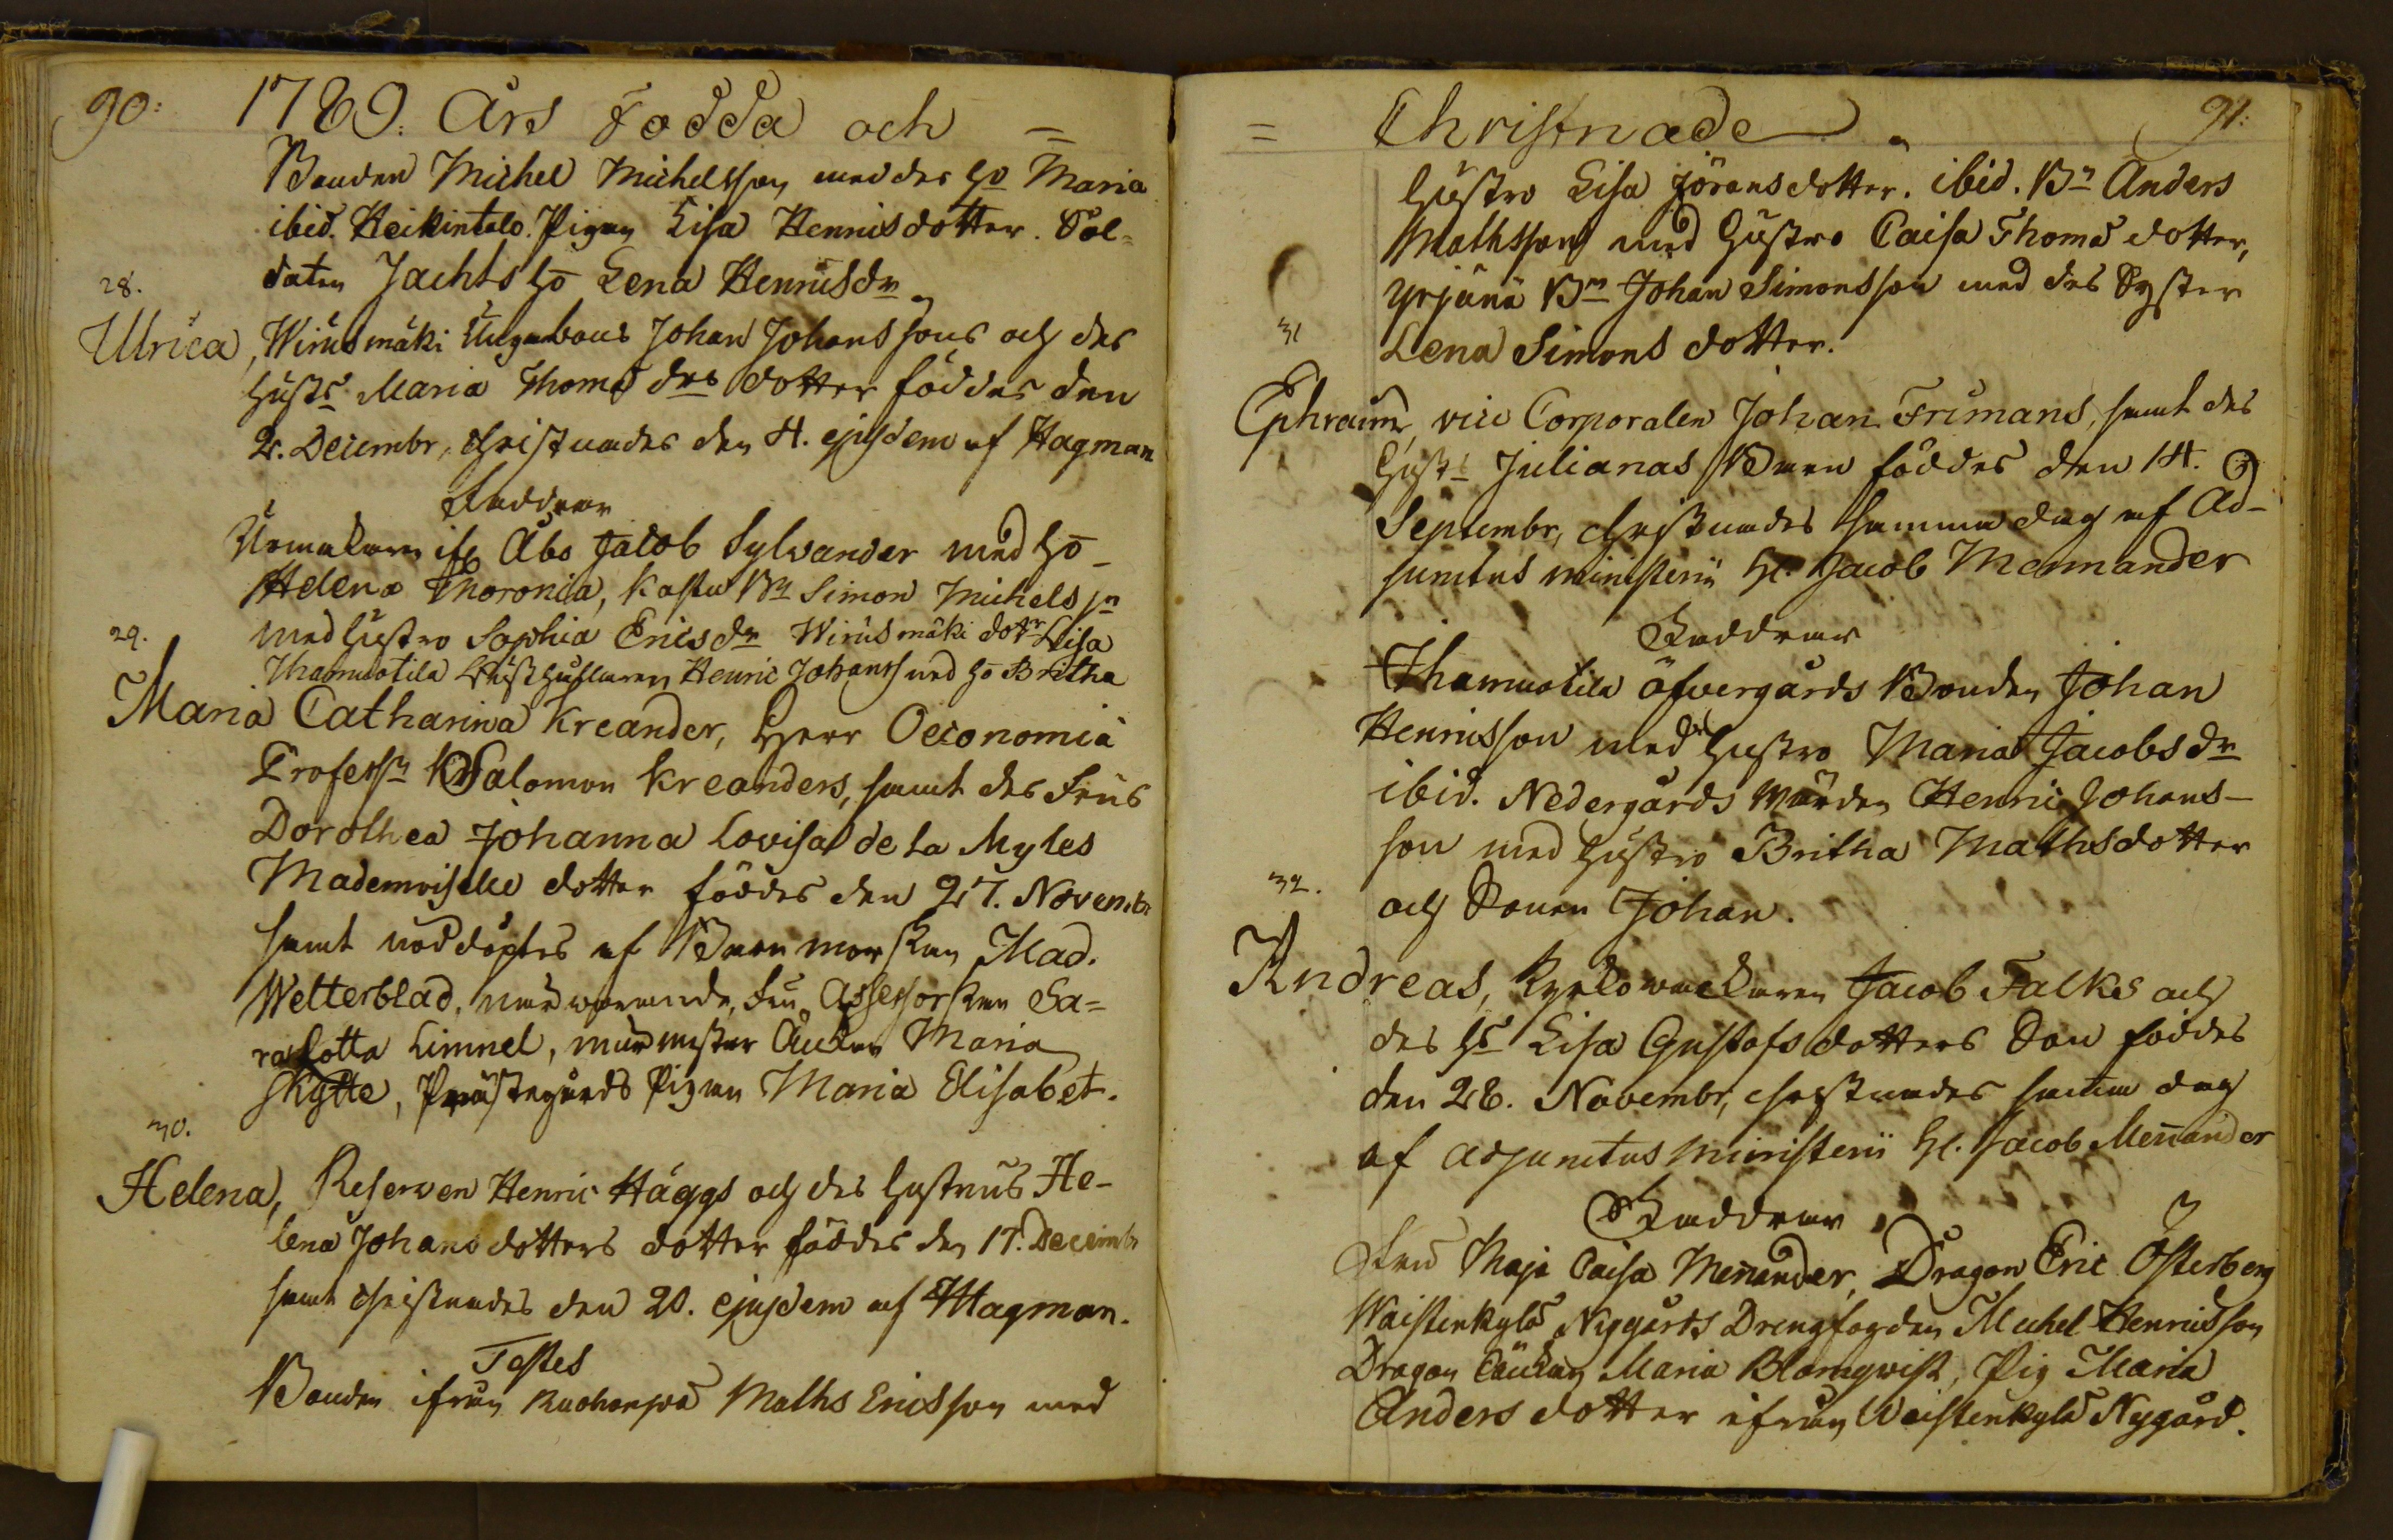 90: 1789. Års Födda och =
Bonden Michel Michelsson med des ho Maria
ibid. Heikintalo. Pigan Lisa Henricsdotter. Sol-
daten Jachts ho Lena Henricsdr
28.
Ulrica, Wirusmäki Ungabons Johan Johanssons och des
hustr Maria Thomædrs dotter föddes den
2. Decembr, christnades den 4. ejusdem af Hagman
Faddrar
Urmakaren ifr Åbo Jacob Sylvander med ho
Helena Thoronia, Kastu Bn Simon Michelssn
med hustro Sophia Ericsdr Wirusmäki dotr Lisa
29.
Thamuotila Henric Johanss med ho Britha
Maria Catharina Kreander, Herr Oeconomiä
Professn Salomon Kreanders, samt des Frus
Dorothea Johanna Lovisa de la Myles
Mademoiselle dotter föddes den 27. Novembr
samt nöddöptes af Barnmorskan Mad.
Wetterblad, närwarande, Fru Assessorskan Sa=
ra Lotta Limnel, murmestar Änkan Maria
Skytte, Prästegårds Pigan Maria Elisabet.
30.
Helena, Reserven Henric Häggs och des hustrus He-
lena Johansdotters dotter föddes den 17. Decembr
samt christnades den 20. ejusdem af Hagman.
Testes
Bonden ifrån Ruohonpä Maths Ericsson med
= Christnade 91:
hustro Lisa Jöransdotter. ibid. Bn Anders
Mathsson med hustro Caisa Thomædotter,
Yrjänä Bn Johan Simonsson med des Syster
31
Lena Simonsdotter.
Ephraim, vice Corporalen Johan Frimans, samt des
hustr Julianas Barn föddes den 14.
Septembr, christnades samma dag af Ad-
junctus ministerii Hr. Jacob Mennander
Faddrar
Thamuotila öfvergårds Bonden Johan
Henricsson med hustro Maria Jacobsdr
ibid. Nedergårds Wärden Henric Johans-
son med hustro Britha Mathsdotter
32.
och Sonen Johan.
Andreas, Kyrkowacktaren Jacob Falks och
des hs Lisa Gustafsdotters Son föddes
den 28. Novembr, christnades samma dag
af adjunctus Ministerii Hr. Jacob Men̄ander
Faddrar
Fru Maja Caisa Men̄ander, Dragon Eric Österberg
Waistenkylä Nygårds Drengfogden Michel Henricsson
Dragon Enkan Maria Blomqvist, Pig Maria
Andersdotter ifrån Waistenkylä Nygård.